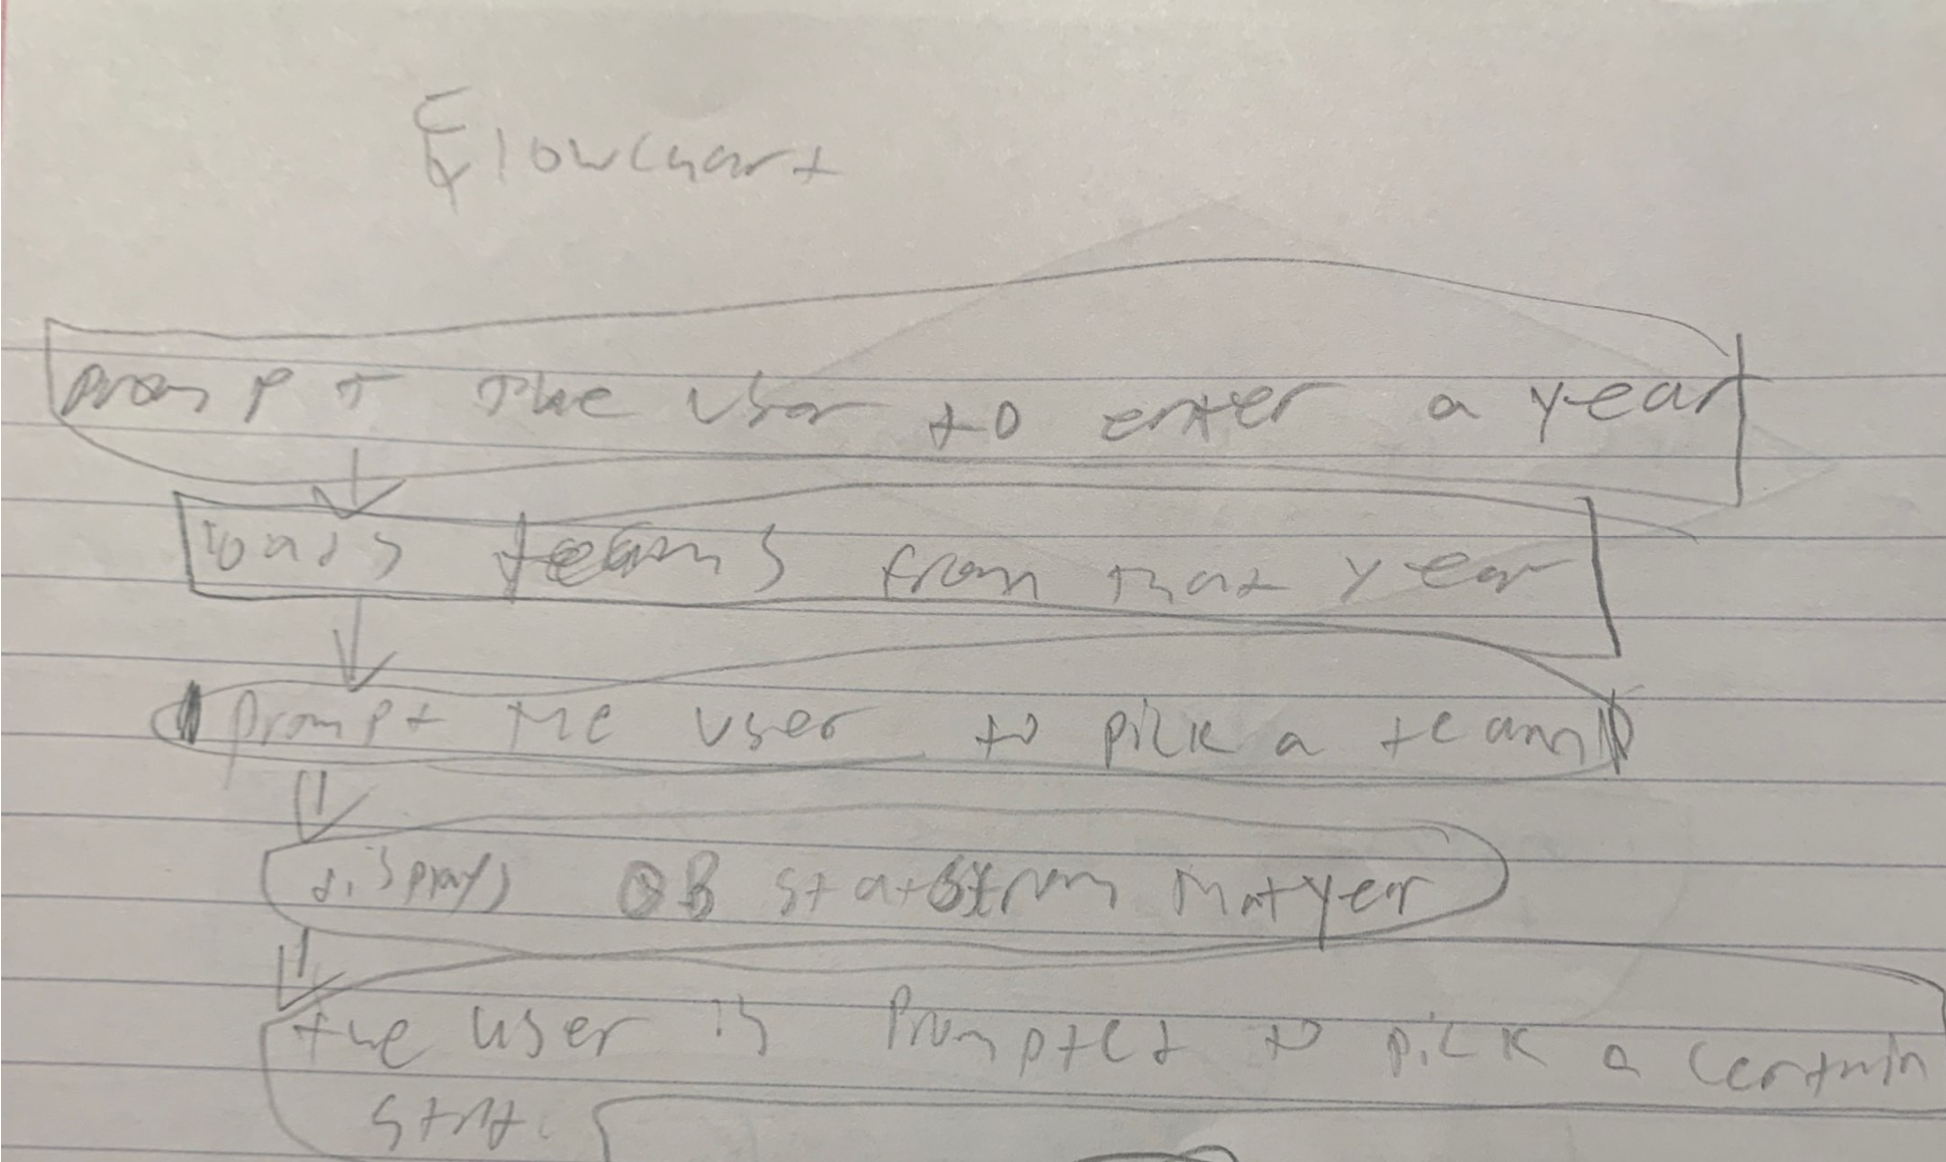 Flowchart
prompt the user to enter a year
loads teams from that year
prompt the user to pick a team
displays QB stats from that year
the user is Prompted to pick a certain
stat.